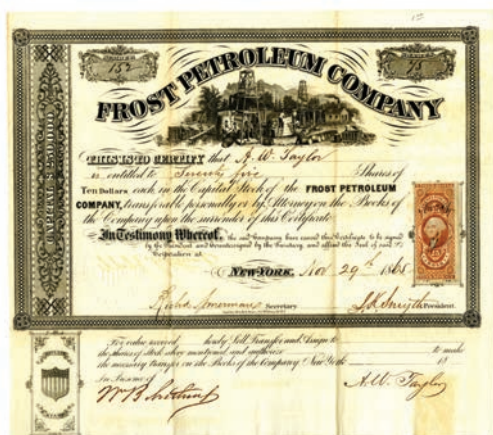 152
75
FROST PETROLEUM COMPANY
THIS IS TO CERTIFY that A. W. Taylor
is entitled to Twenty five Shares of
Ten Dollars each in the Capital Stock of the FROST PETROLEUM
COMPANY, transferable personally or by Attorney on the Books of
the Company upon the surrender of this Certificate
In Testimony Whereof, the said Company have caused this Certificate to be signed
by the President and Countersigned by the Secretary, and affixed the Seal of said
Corporation at
NEW-YORK, Nov 29th 1865
Secretary
President.
For value received hereby Sell, Transfer and Assign to
the shares of Stock above mentioned, and authorize to make
the necessary transfer on the Books of the Company New York 18
In Presence of
A. W. Taylor